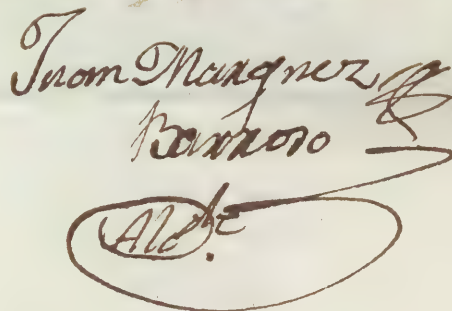 Juan Marquez
Barroso
Alc.de